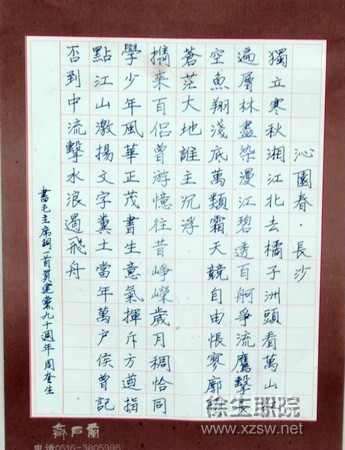 沁園春·長沙
獨立寒秋湘江北去橘子洲頭看萬山
遍層林盡染漫江碧透百舸爭流鷹擊
空魚翔淺底萬類霜天競自由悵寥廓
蒼茫大地誰主沉浮
攜來百侶曾游憶往昔崢嶸歲月稠恰同
學少年風華正茂書生意氣揮斥方遒指
點江山激揚文字糞土當年萬戶侯曾記
否到中流擊水浪遏飛舟
書毛主席詞一首賀建黨九十週年 周登生
徐生职院
www.xzsw.net
电话0516-3805996